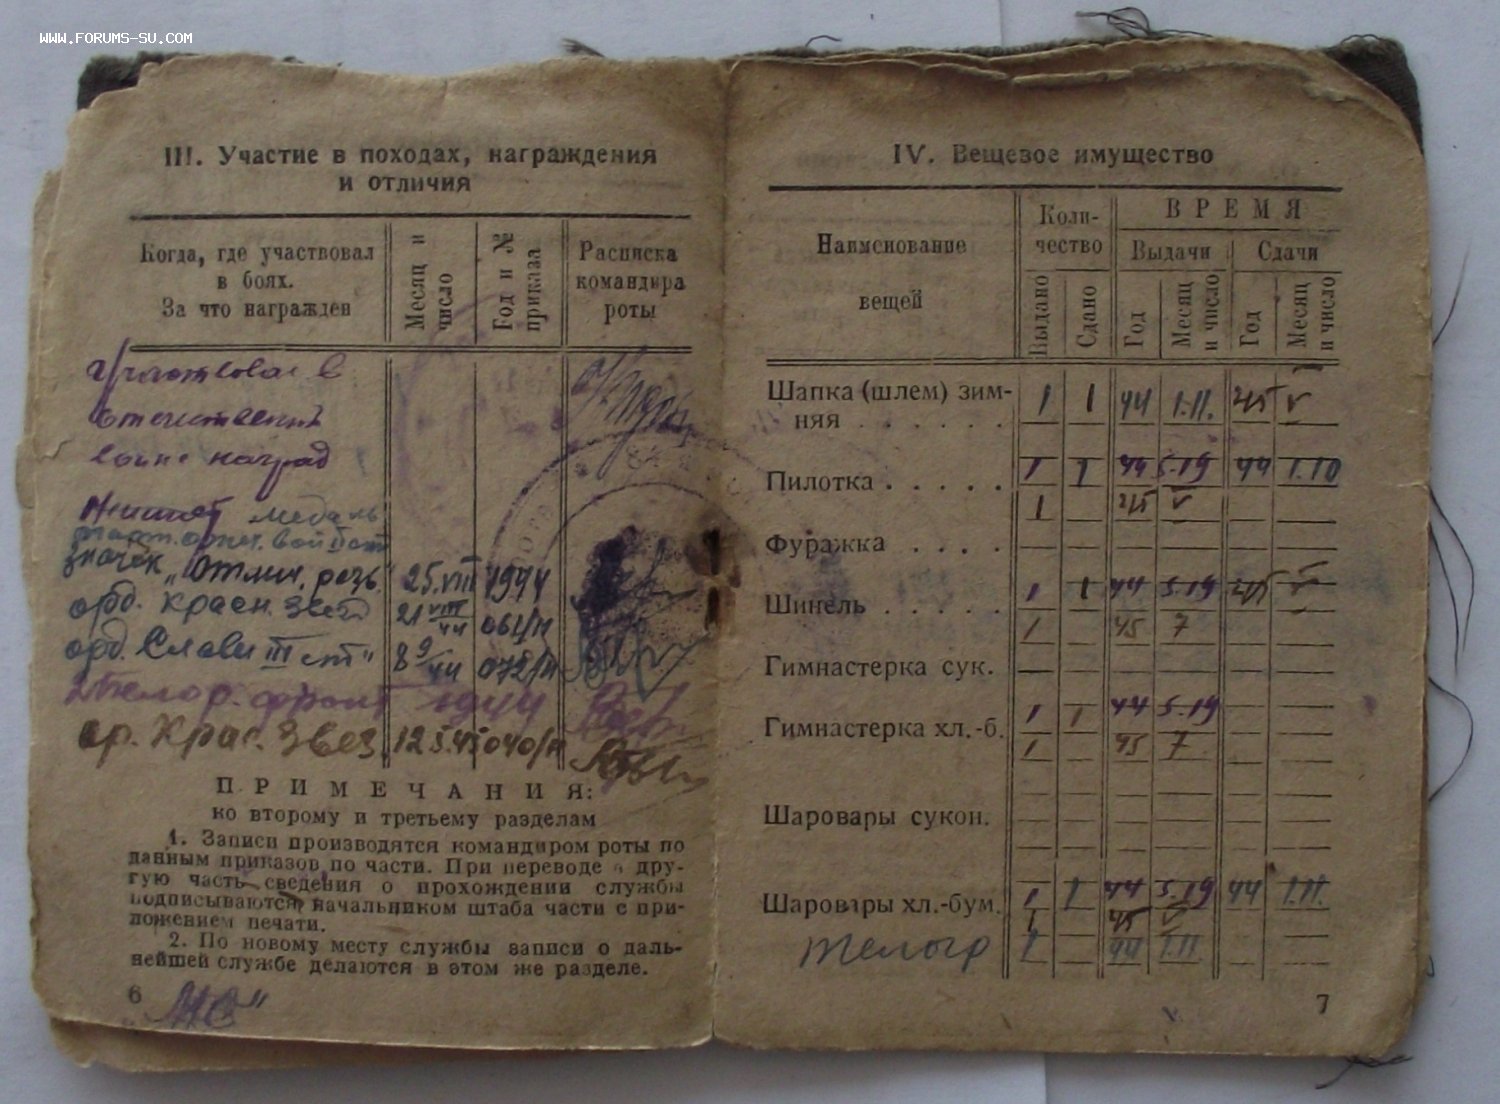 WWW.FORUMS-SU.COM
III. Участие в походах, награждения
и отличия
Когда, где участвовал
в боях.
За что награжден
Месяц и
число
Год и №
приказа
Расписка
командира
роты
Участвовал в
войне наград
медаль
значек „Отлич. разв." 25.VIII 1944
орд. красн. звезд 21 VIII 44 061/н
орд. Славы III ст" 8 9/44 072/н
1944
ор. Крас. Звез. 12 5.45 040/н
ПРИМЕЧАНИЯ:
ко второму и третьему разделам
1. Записи производятся командиром роты по
данным приказов по части. При переводе в дру-
гую часть сведения о прохождении службы
подписываются начальником штаба части с при-
ложением печати.
2. По новому месту службы записи о даль-
нейшей службе делаются в этом же разделе.
6
IV. Вещевое имущество
Наименование
вещей
Коли-
чество
ВРЕМЯ
Выдачи
Сдачи
Выдано
Сдано
Год
Месяц
и число
Год
Месяц
и число
Шапка (шлем) зим-
няя . . . . . . 1 1 44 1.11. 45 V
Пилотка . . . . . 1 1 44 5.19 44 1.10
1 45 V
Фуражка . . . .
Шинель . . . . . 1 1 44 5.19 45 V
1 45 7
Гимнастерка сук.
Гимнастерка хл.-б. 1 1 44 5.19
1 45 7
Шаровары сукон.
Шаровары хл.-бум. 1 1 44 5.19 44 1.11.
1 45 V
телогр 1 44 1.11
7